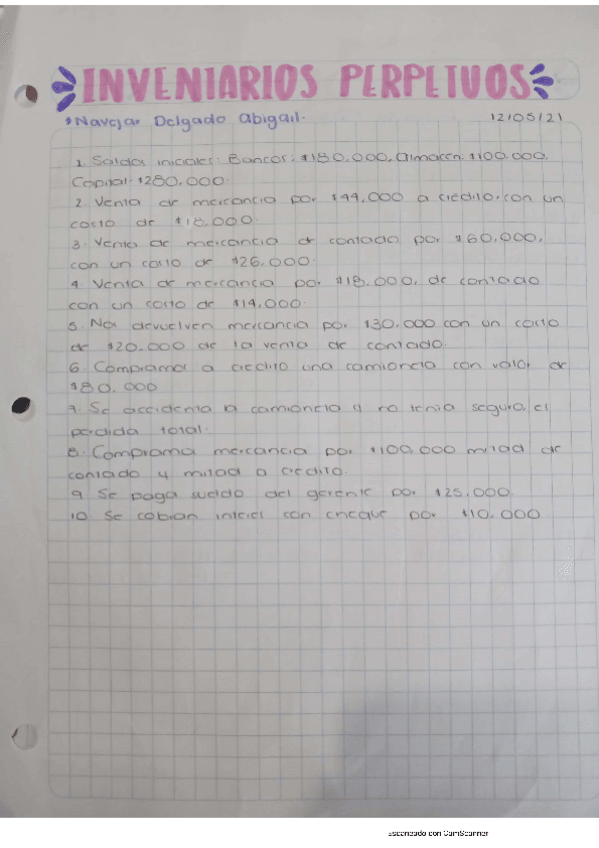 INVENTARIOS PERPETUOS
Navejar Delgado Abigail.
12/05/21
1. Saldos iniciales: Bancos: $180.000, Almacen: $100.000,
Capital: $280,000.
2. Venta de mercancia por $44,000 a credito, con un
costo de $18.000.
3. Venta de mercancia de contado por $60,000,
con un costo de $26.000.
4. Venta de mercancia por $18.000, de contado
con un costo de $14,000.
5. Nos devuelven mercancia por $30.000 con un costo
de $20.000 de la venta de contado.
6. Compramos a credito una camioneta con valor de
$80.000
7. Se accidenta la camioneta y no tenia seguro, es
perdida total.
8. Compramos mercancia por $100.000 mitad de
contado y mitad a credito.
9. Se paga sueldo del gerente por $25.000
10. Se cobran con cheque por $10.000
Escaneado con CamScanner